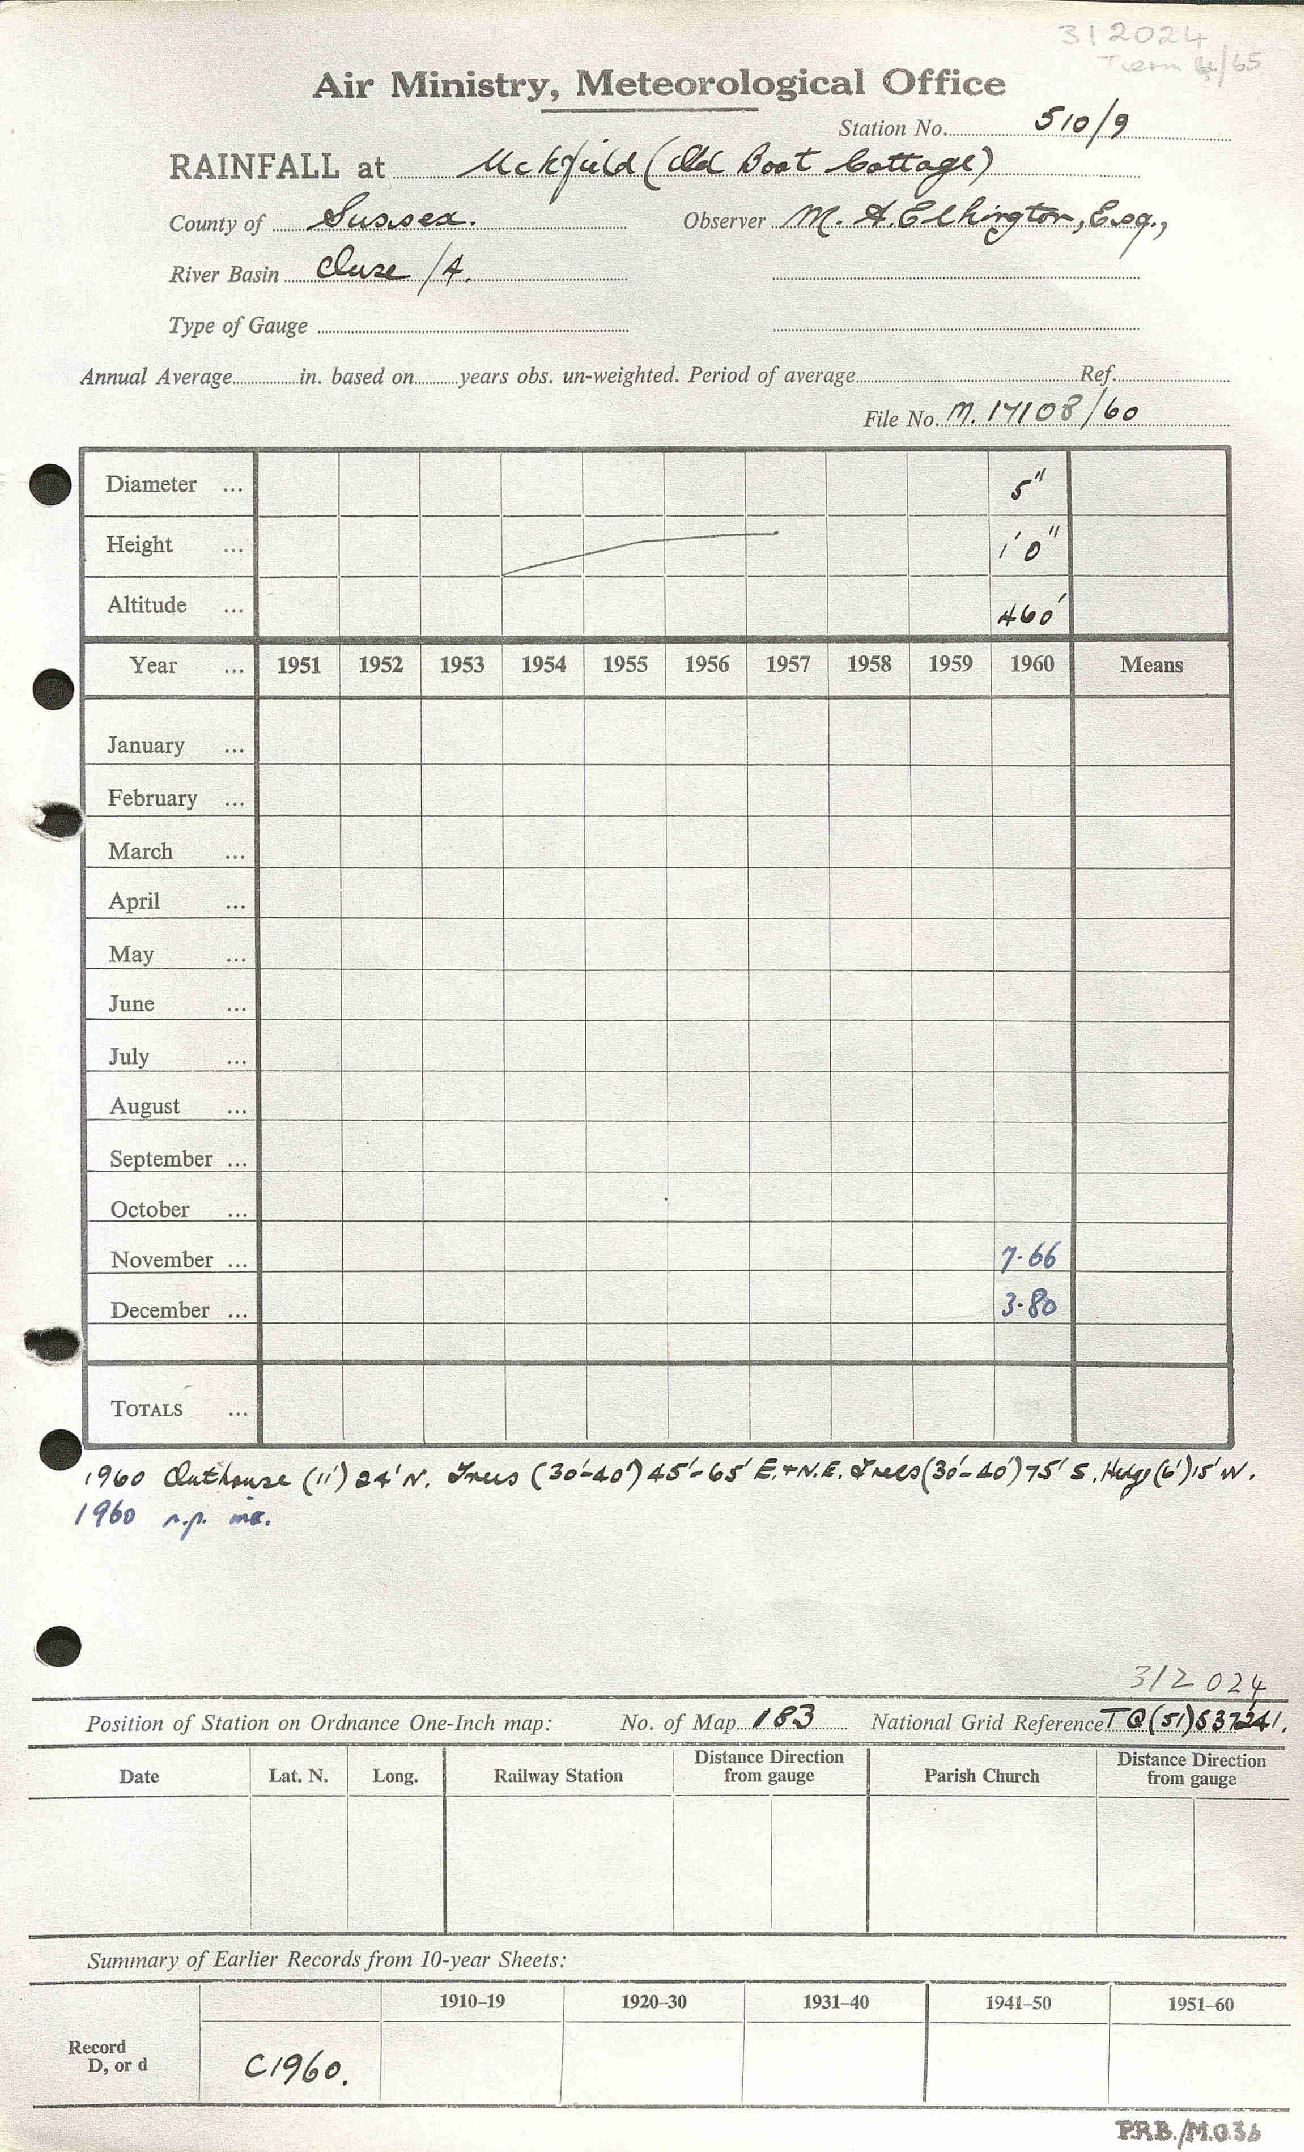 312024
Term 4/65
Air Ministry, Meteorological Office
Station No. 510/9
RAINFALL at Uckfield (Old Boat Cottage)
County of Sussex. Observer M. A. Elkington, Esq.,
River Basin Ouse /A.
Type of Gauge
Annual Average in. based on years obs. un-weighted. Period of average Ref.
File No. M. 17108/60
Diameter ... 5"
Height ... 1' 0"
Altitude ... 460'
Year ... 1951 1952 1953 1954 1955 1956 1957 1958 1959 1960 Means
January ...
February ...
March ...
April ...
May ...
June ...
July ...
August ...
September ...
October ...
November ... 7.66
December ... 3.80
TOTALS ...
1960 Outhouse (11') 24' N. Trees (30'-40') 45'-65' E. + N.E. Trees (30'-40') 75' S. Hedge (6') 15' W.
1960 n.p. inc.
312024
Position of Station on Ordnance One-Inch map: No. of Map 183 National Grid Reference TQ (51) 537241.
Date Lat. N. Long. Railway Station Distance Direction from gauge Parish Church Distance Direction from gauge
Summary of Earlier Records from 10-year Sheets:
1910–19 1920–30 1931–40 1941–50 1951–60
Record
D, or d C1960.
P.R.B./M.O.36